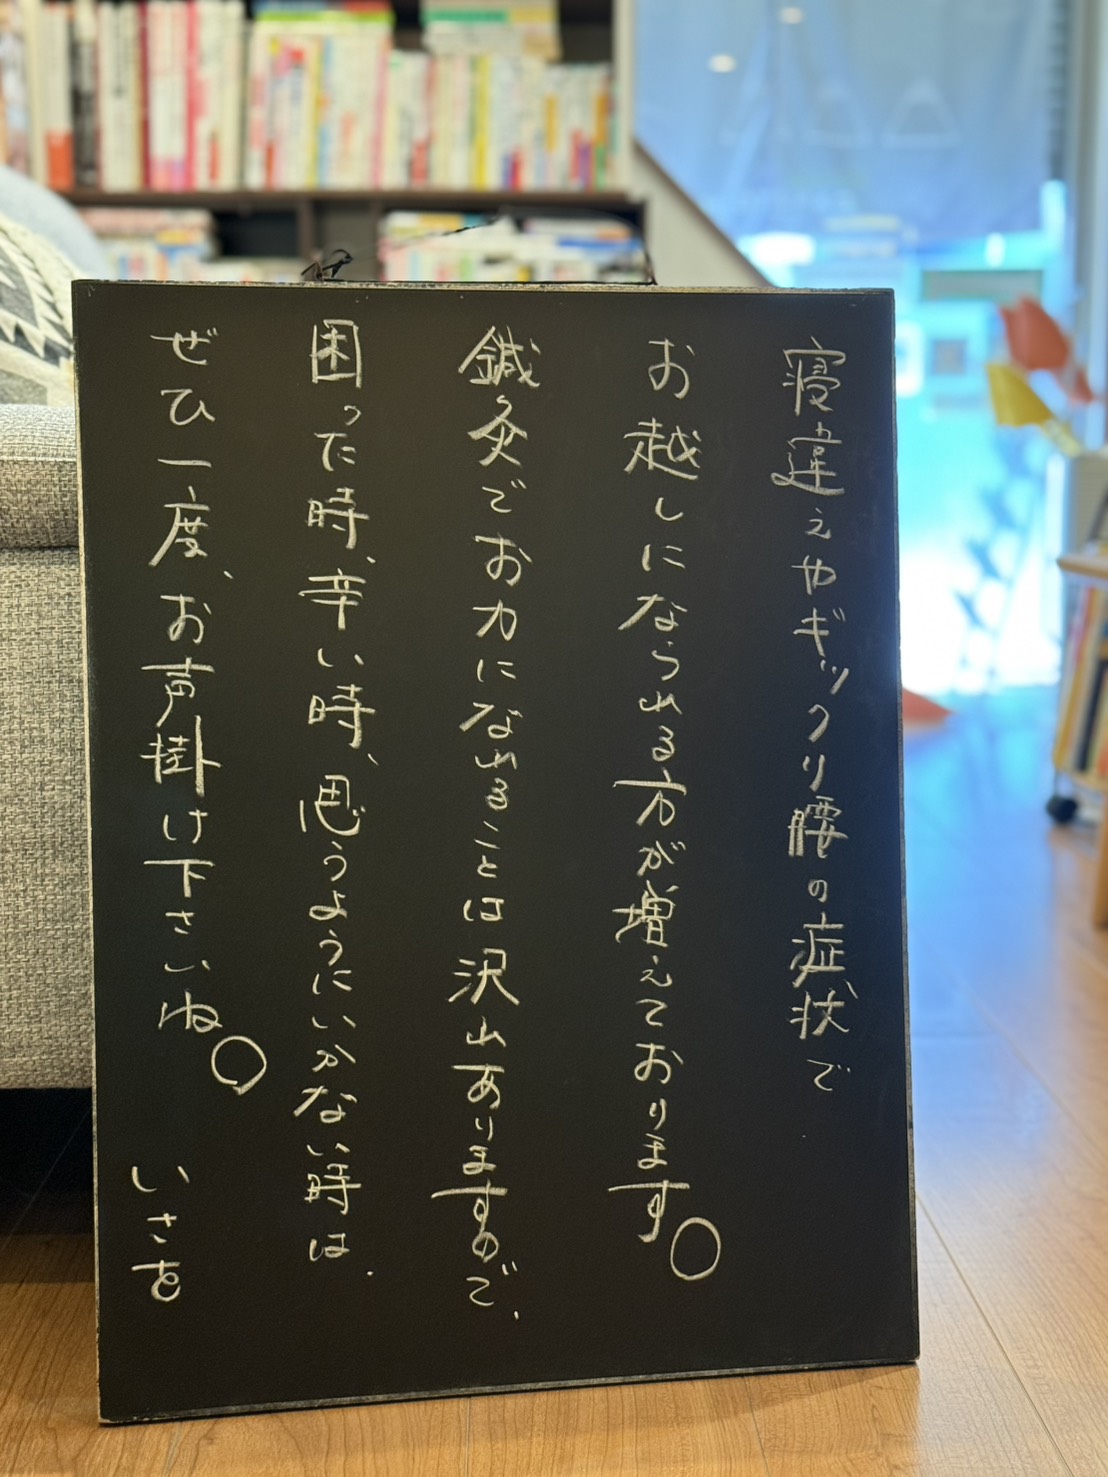 寝違えやギックリ腰の症状で
お越しになられる方が増えております。
鍼灸でお力になれることは沢山ありますので、
困った時、辛い時、思うようにいかない時は、
ぜひ一度、お声掛け下さいね。
いさを